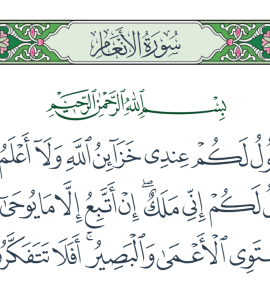 سُورَةُ الأَنْعَامِ
بِسْمِ اللَّهِ الرَّحْمَٰنِ الرَّحِيمِ
لَكُمْ عِندِى خَزَآئِنُ ٱللَّهِ وَلَآ أَعْلَمُ
لَكُمْ إِنِّى مَلَكٌ ۖ إِنْ أَتَّبِعُ إِلَّا مَا يُوحَىٰٓ
ٱلْأَعْمَىٰ وَٱلْبَصِيرُ ۚ أَفَلَا